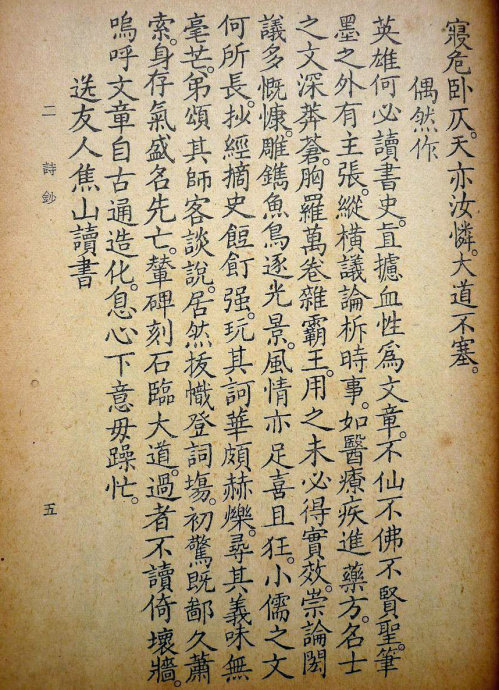 寢危卧仄。天亦汝憐。大道不塞。
偶然作
英雄何必讀書史。直攄血性爲文章。不仙不佛不賢聖。筆
墨之外有主張。縱橫議論析時事。如醫療疾進藥方。名士
之文深莽蒼。胸羅萬卷雜霸王。用之未必得實效。崇論閎
議多慨慷。雕鐫魚鳥逐光景。風情亦足喜且狂。小儒之文
何所長。抄經摘史餖飣强。玩其詞華頗赫爍。尋其義味無
毫芒。弟頌其師客談說。居然拔幟登詞場。初驚既鄙久蕭
索。身存氣盛名先亡。輦碑刻石臨大道。過者不讀倚壞牆。
嗚呼文章自古通造化。息心下意毋躁忙。
送友人焦山讀書
二 詩鈔 五